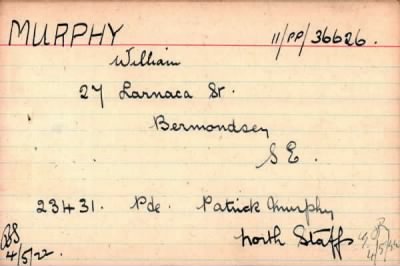 MURPHY 11/PP/36626.
William
27 Larnaca St.
Bermondsey
S E.
23431. Pde. Patrick Murphy
North Staffs
4/5/22
4/5/22